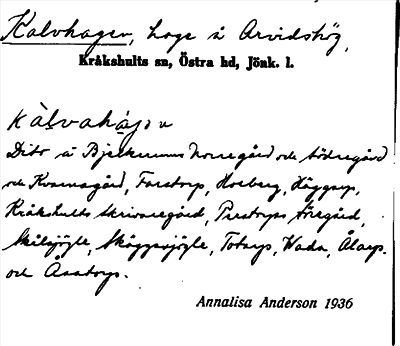 Kalvhagen, hage å Arvidshög,
Kråkshults sn, Östra hd, Jönk. l.
Kàlvahàgən
Dito å Bjerkemans Norregård och Södregård
och Kvarnagård, Farstorp, Hoeberg, Häggeryp,
Kråkshults Skrivaregård, Prestorps Föregård,
Skäggesjögle, Totaryp, Wada, Ålaryp
och Åsatorp.
Annalisa Anderson 1936